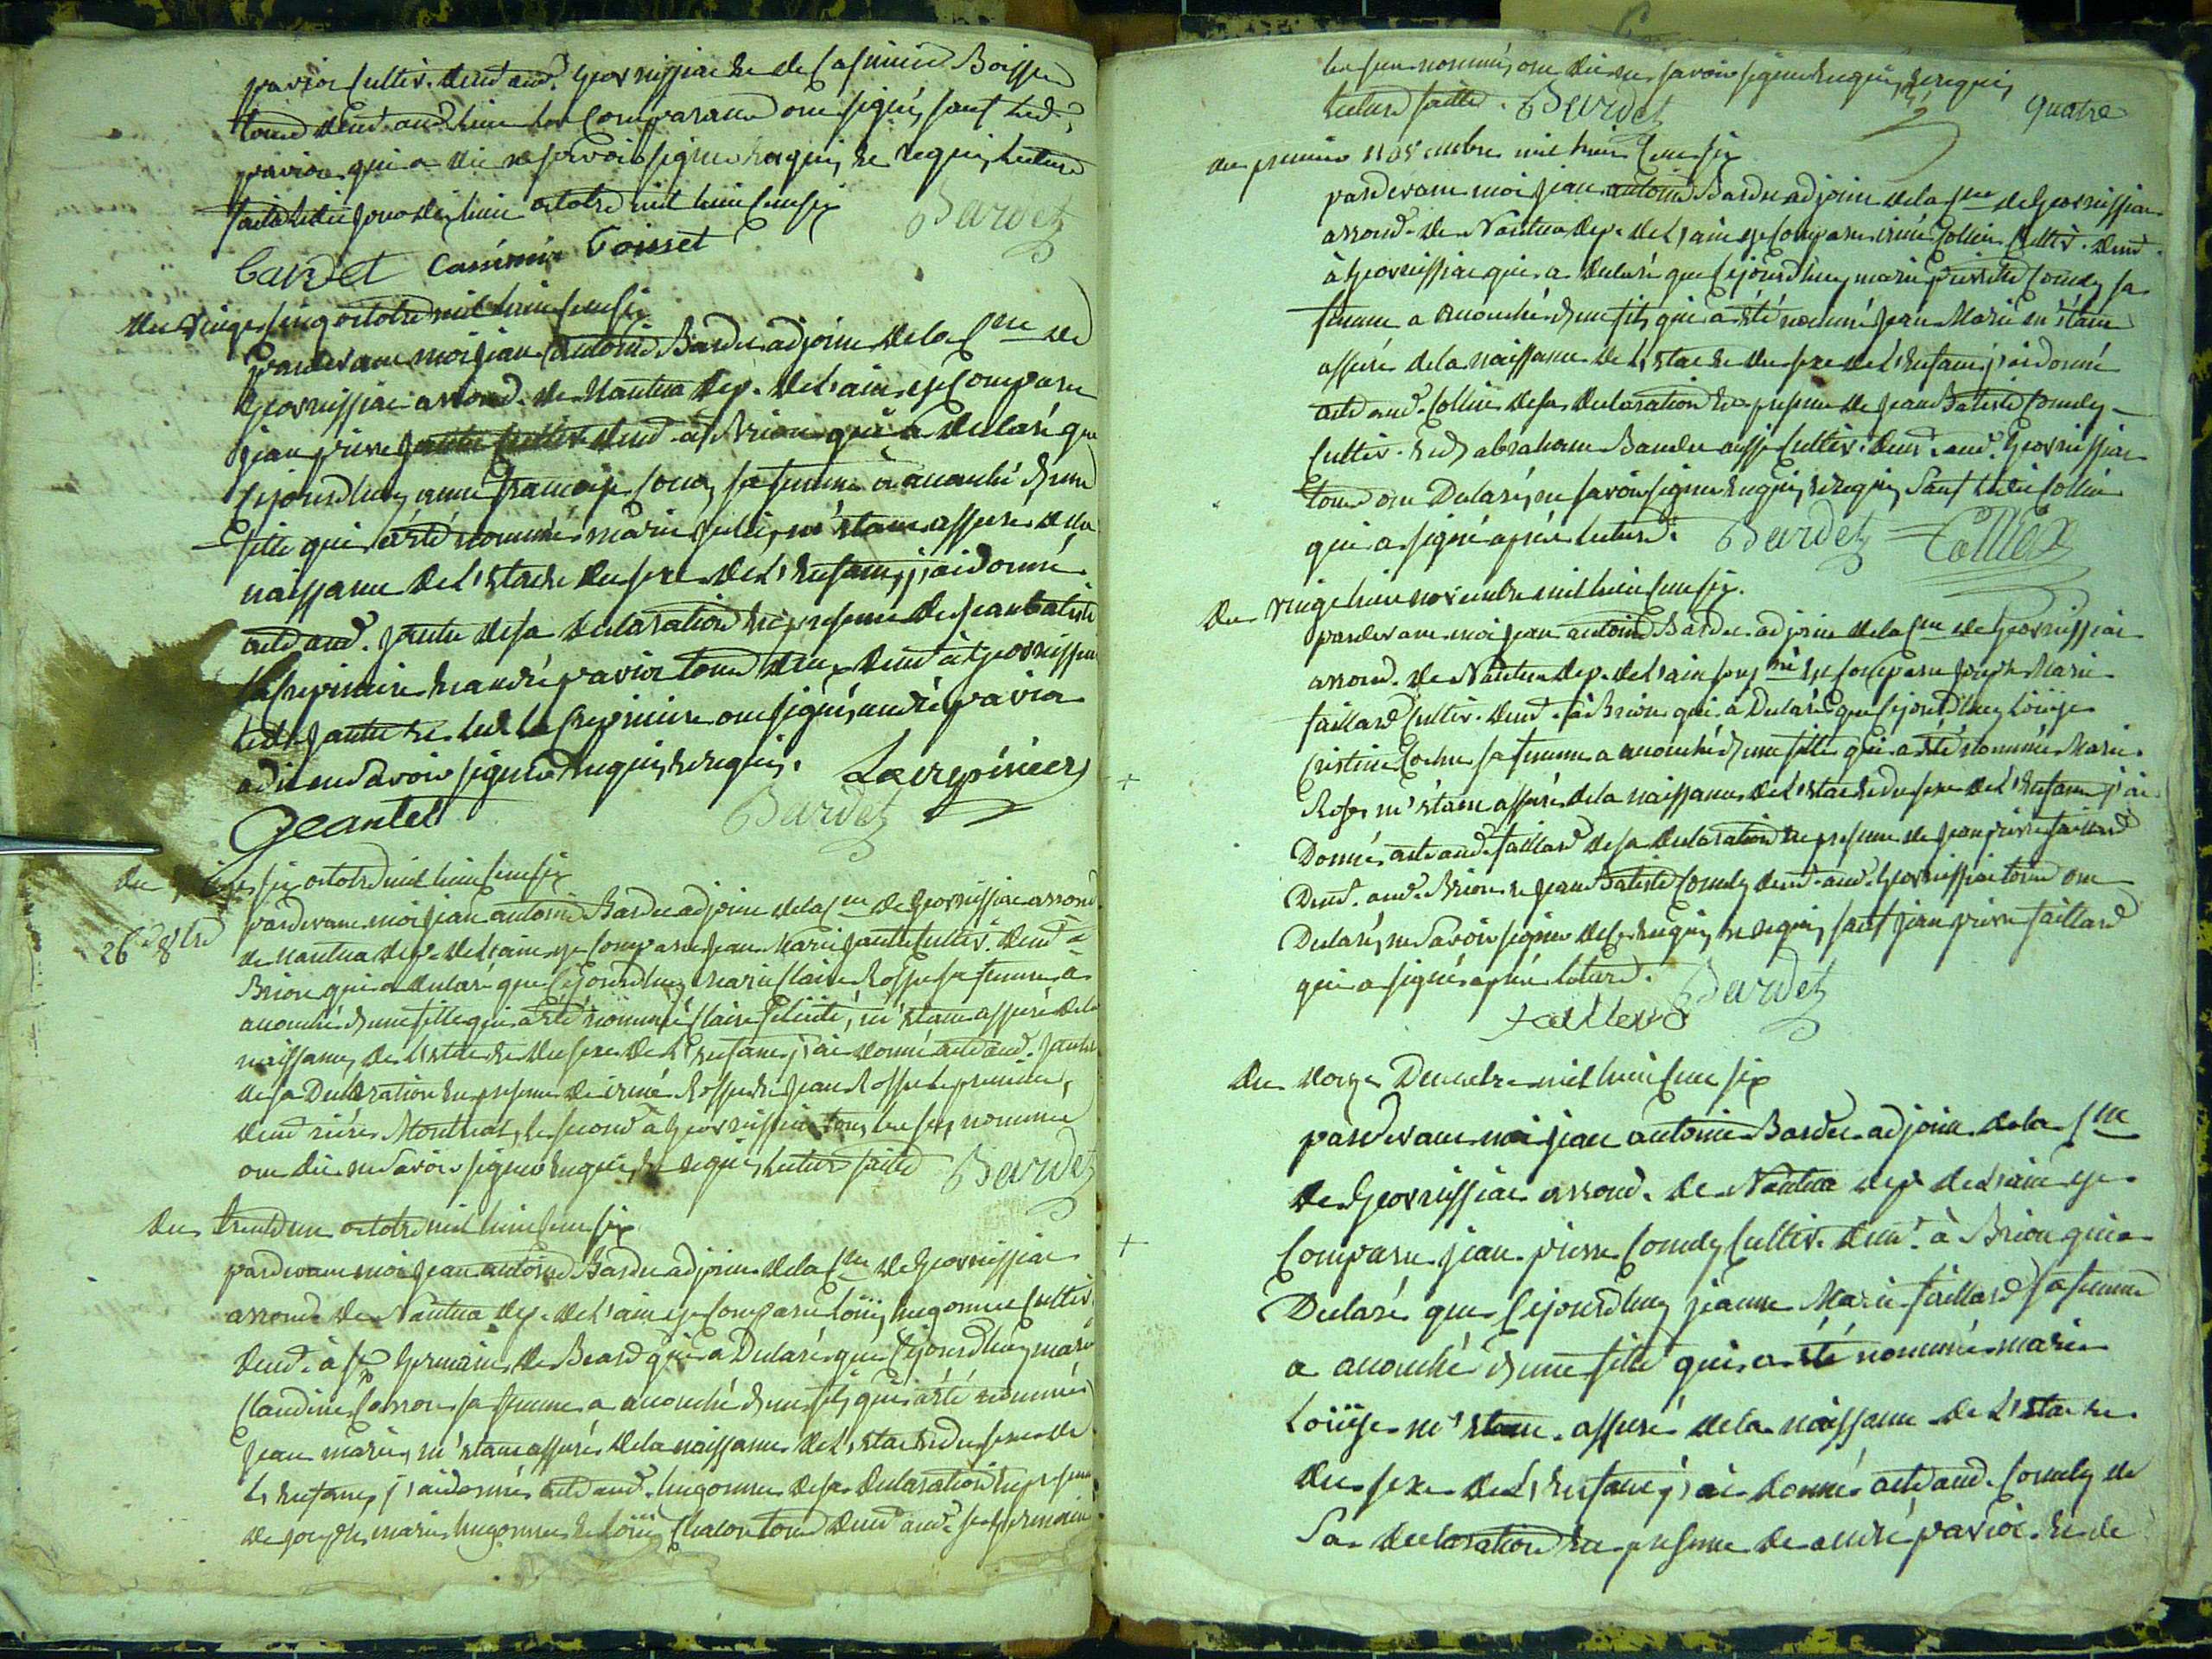 pavior cultiv. demt. aud. Geovressiat et de Casimir Boisset
tous demt. aud. lieu les comparans ont signé, sauf led.
pavior qui a dit ne savoir signer enquis, et requis, lecture
faite ledit jour dix huit octobre mil huit cent six
Bardet
Cardet Casimir Boisset
du vingt cinq octobre mil huit cent six
pardevant moi jean antoine Bardet adjoint de la Cne de
Geovressiat arrond. de Nantua dep. de l'ain est comparu
jean pierre jantet cultiv. demt. à Brion qui a déclaré que
cejourdhuy anne françoise sa femme a accouché d'une
fille qui a été nommée marie julie, m'étant assuré de la
naissance de l'état et du sexe de l'enfant, j'ai donné
acte aud. jantet de sa declaration en presence de jean batiste
Lacrepiniere et andré pavior tous deux demt. à Geovressiat
led. jantet et led. Lacrepiniere ont signé, andré pavior
a dit ne savoir signer enquis, et requis. Lacrepinier
Geantet Bardet
du vingt six octobre mil huit cent six
26 8bre
pardevant moi jean antoine Bardet adjoint de la Cne de Geovressiat arrond.
de Nantua dep. de l'ain est comparu jean Marie jantet cultiv. demt. à
Brion qui a déclaré que cejourdhuy marie Claire Rosset sa femme a
accouché d'une fille qui a été nommée Claire félicité, m'étant assuré de la
naissance, de l'état et du sexe de l'enfant, j'ai donné acte aud. jantet
de sa declaration en presence de irené Rosset et jean Rosset le premier,
demt. Montreal, le second à Geovressiat tous les susnommés
ont dit ne savoir signer enquis, et requis, lecture faite Bardet
du trente un octobre mil huit cent six
pardevant moi jean antoine Bardet adjoint de la Cne de Geovressiat
arrond. de Nantua dep. de l'ain est comparu Loüis hugonnet cultiv.
demt. à St. germain de Beard qui a déclaré que cejourdhuy marie
Claudine Carron sa femme a accouché d'un fils qui a été nommé
jean marie, m'étant assuré de la naissance de l'état et du sexe de
l'enfant, j'ai donné acte aud. hugonnet de sa declaration en presence
de joseph marie hugonnet et Loüis Chalon tous demt. aud. St. germain
les sus nommés, ont dit ne savoir signer enquis, et requis,
lecture faite. Bardet
quatre
du premier novembre mil huit cent six
pardevant moi jean antoine Bardet adjoint de la Cne de Geovressiat
arrond. de Nantua dep. de l'ain est comparu irené Collier cultiv. demt.
à Geovressiat qui a déclaré que cejourdhuy marie pierrette Comely sa
femme a accouché d'un fils qui a été nommé jean Marie m'étant
assuré de la naissance de l'état et du sexe de l'enfant j'ai donné
acte aud. Collier de sa declaration en presence de jean Batiste Comely
cultiv. et d'abraham Bandet aussi cultiv. demt. aud. Geovressiat
tous ont declaré, ne savoir signer enquis, et requis, Sauf ledit Collier
qui a signé après lecture. Bardet Colliex
Du vingt huit novembre mil huit cent six.
pardevant moi jean antoine Bardet adjoint de la Cne de Geovressiat
arrond. de Nantua dep. de l'ain est comparu joseph Marie
faillard cultiv. demt. à Brion qui a déclaré que cejourdhuy Loüise
Cristine sa femme a accouché d'une fille qui a été nommée Marie
Rose, m'étant assuré de la naissance de l'état et du sexe de l'enfant j'ai
Donné acte aud. faillard de sa declaration en presence de jean pierre faillard
demt. aud. Brion et jean Batiste Comely demt. aud. Geovressiat tous ont
declaré, ne savoir signer de ce enquis, et requis, sauf jean pierre faillard
qui a signé après lecture. Bardet
faillard
Du onze Decembre mil huit cent six
pardevant moi jean antoine Bardet adjoint de la Cne
de Geovressiat arrond. de Nantua dep. de l'ain est
comparu jean pierre Comely cultiv. demt. à Brion qui a
Declaré que cejourdhuy jeanne Marie faillard sa femme
a accouché d'une fille qui a été nommée marie
Loüise m'étant assuré de la naissance de l'état et
du sexe de l'enfant j'ai donné acte aud. Comely de
Sa declaration en presence de andré pavior et de